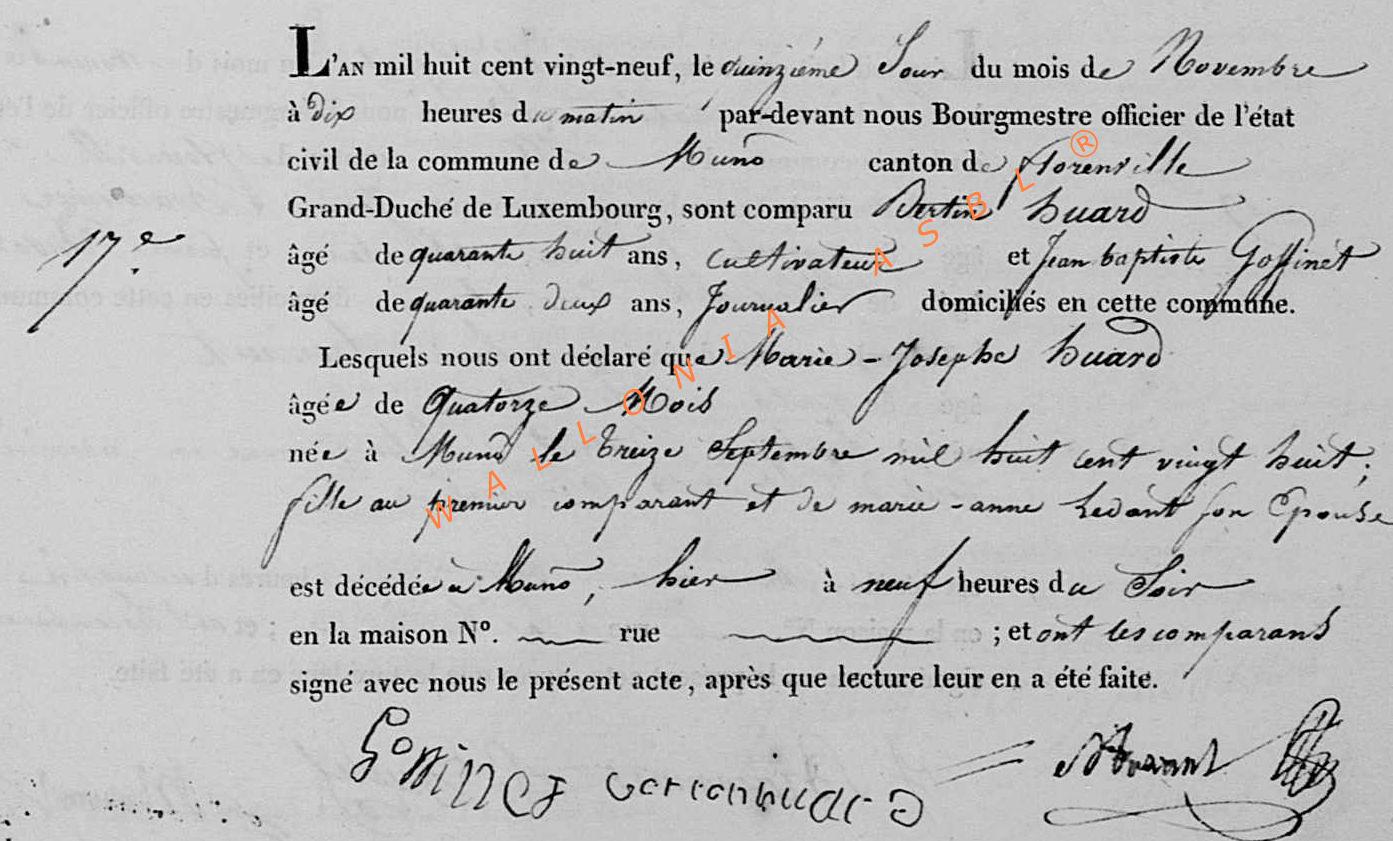 L'AN mil huit cent vingt-neuf, le quinziéme Jour du mois de Novembre
à dix heures du matin par-devant nous Bourgmestre officier de l'état
civil de la commune de Muno canton de Florenville
Grand-Duché de Luxembourg, sont comparu Bertin huard
17e. âgé de quarante huit ans, cultivateur et Jean baptiste Goffinet
âgé de quarante deux ans, Journalier domiciliés en cette commune.
Lesquels nous ont déclaré que Marie-Josephe huard
âgée de Quatorze Mois
née à Muno le treize Septembre mil huit cent vingt huit,
fille au premier comparant et de marie-anne hedant son Epouse
est décédée à Muno, hier à neuf heures du Soir
en la maison N°. rue ; et ont les comparans
signé avec nous le présent acte, après que lecture leur en a été faite.
Goffinet huard
WALLONIA ASBL®